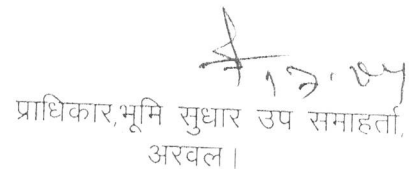 प्राधिकार,भूमि सुधार उप समाहर्ता,
अरवल।